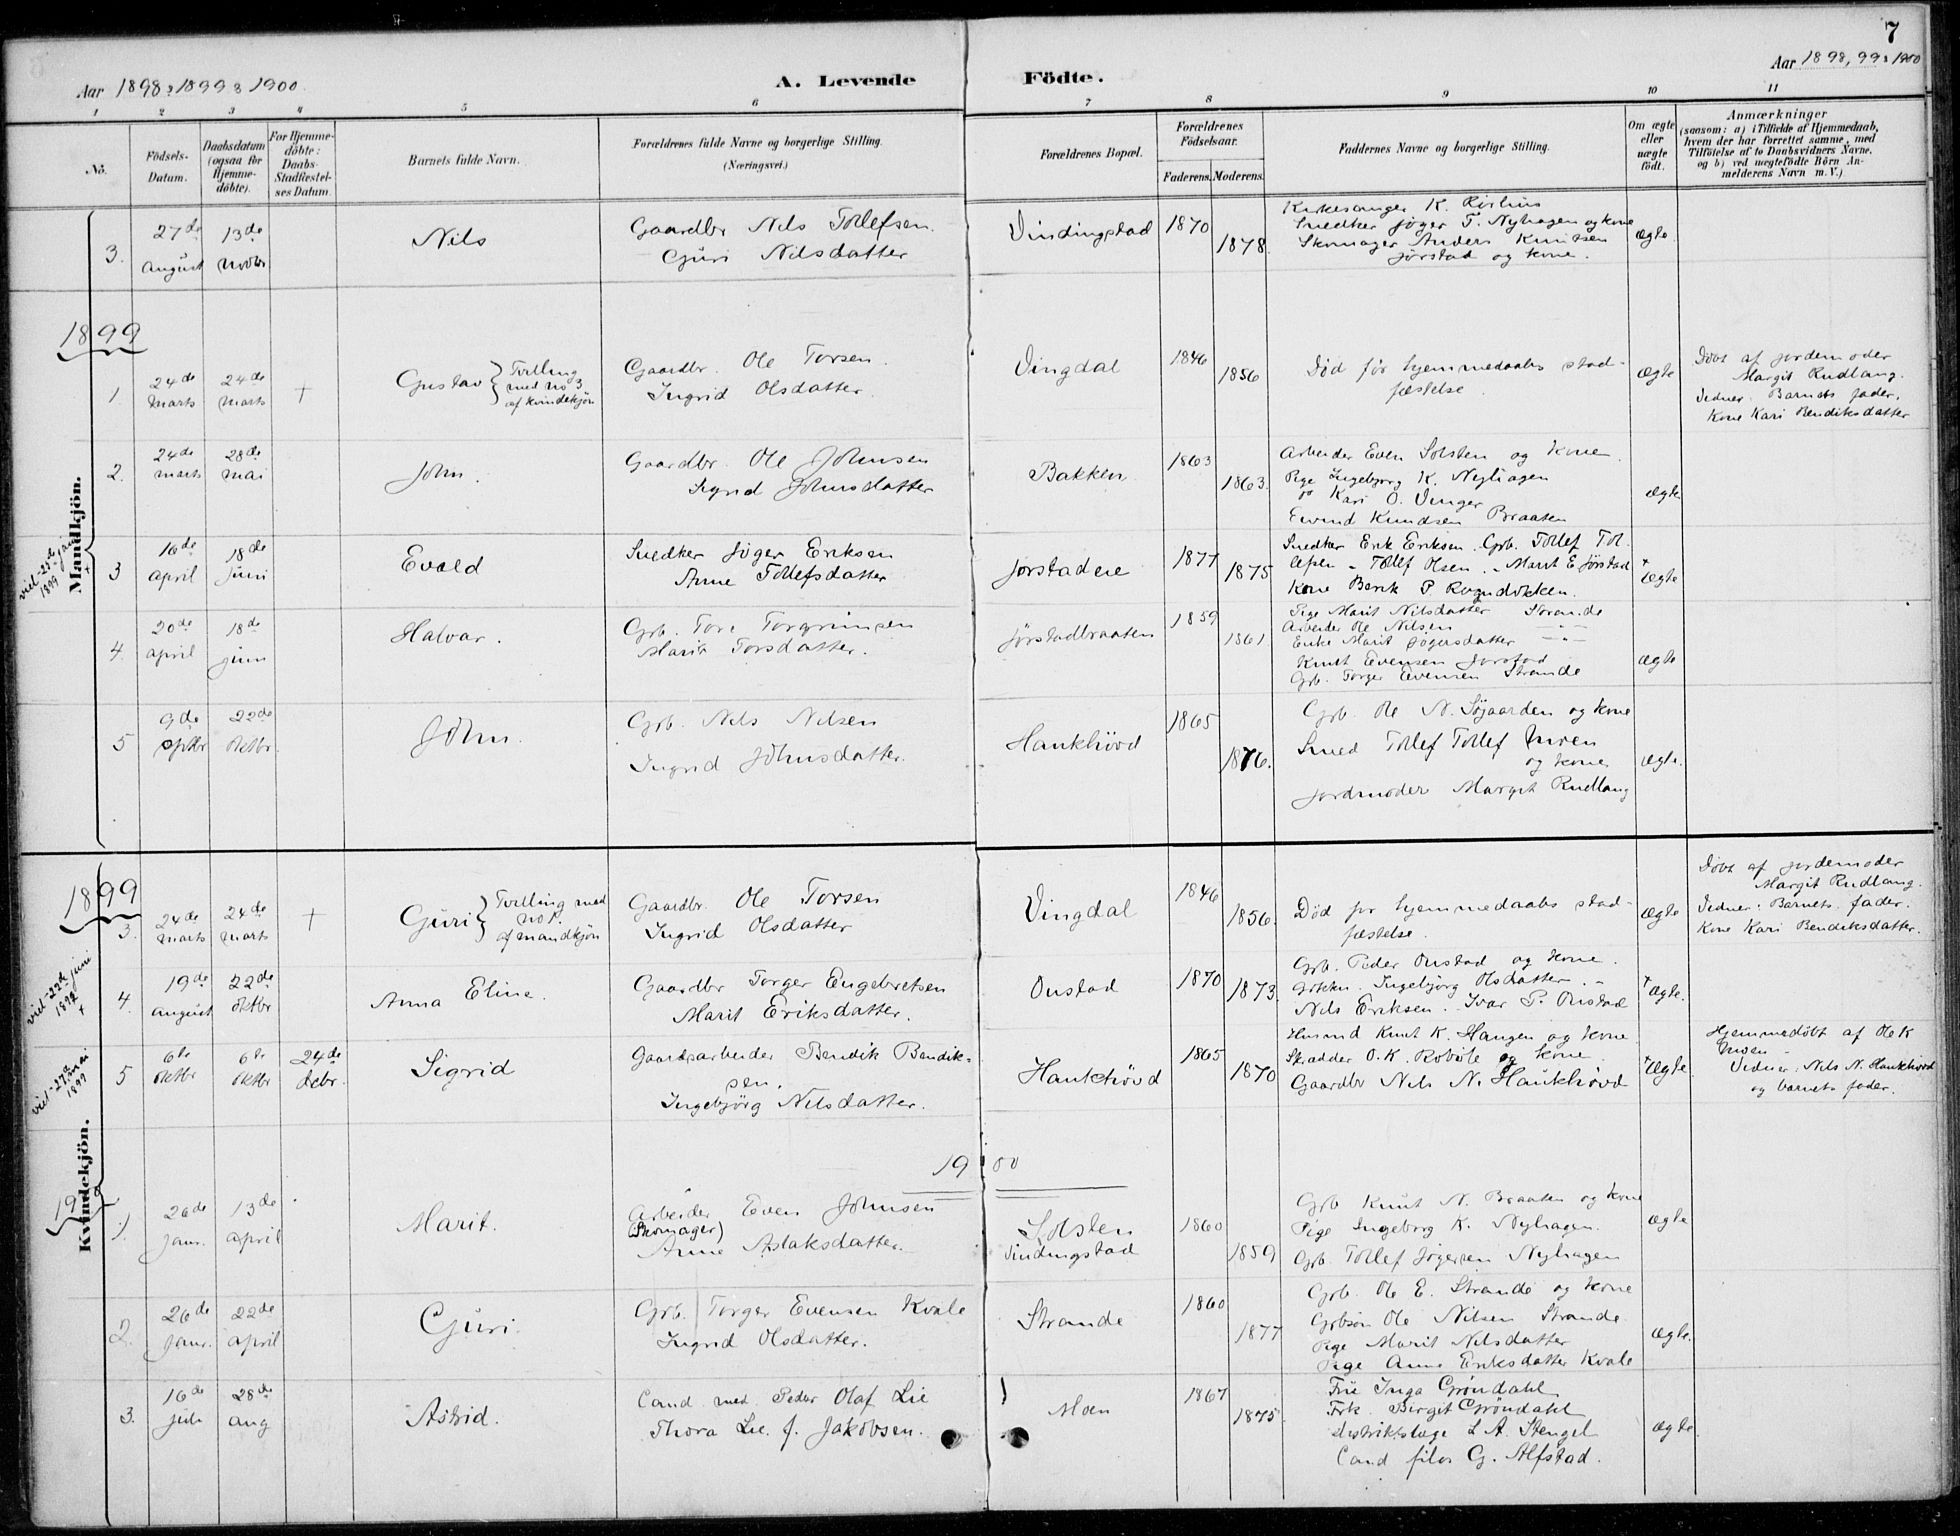 7
Aar 1898, 1899 & 1900
A. Levende Födte.
Aar 1898, 99 & 1900
1 2 3 4 5 6 7 8 9 10 11
No.
Födsels-Datum.
Daabsdatum (ogsaa for Hjemme-döbte).
For Hjemme-döbte: Daabs-Stadfæstel-ses Datum.
Barnets fulde Navn.
Forældrenes fulde Navne og borgerlige Stilling.
(Næringsvei.)
Forældrenes Bopæl.
Forældrenes Födselsaar.
Faderens. Moderens.
Faddernes Navne og borgerlige Stilling.
Om ægte eller uægte födt.
Anmærkninger
(saasom: a) i Tilfælde af Hjemmedaab,
hvem der har forrettet samme, med
Tilföielse af to Daabsvidners Navne,
og b) ved uægtefödte Börn An-
melderens Navn m. V.)
Mandkjön.
3. 27de august 13de novbr Nils
Gaardbr Nils Tollefsen
Guri Nilsdatter
Vindingstad 1870 1878.
Kirkesanger K.
Snedker Jøger T. Nyhagen og kone
Skomager Anders Knutsen
Jørstad og kone.
ægte
1899
1. 24de marts 24de marts + Gustav
Tvilling med no 3 af kvindekjøn
Gaardbr. Ole Torsen.
Ingrid Olsdatter.
Vingdal 1846 1856
Død før hjemmedaabs stad-
fæstelse.
ægte
Døbt af jordemoder
Margit Rudlang.
Vidner: Barnets fader,
Kone Kari Bendiksdatter
2. 24de marts 28de mai John.
Gaardbr. Ole Johnsen
Sigrid Johnsdatter
Bakken 1863 1863.
Arbeider Even Solsten og kone.
Pige Ingebjorg K. Nyhagen
" Kari O. Vinger
Eivind Knudsen Braaten
ægte
viet 25de jan 1899 +
3 16de april 18de juni Evald
Snedker Jøger Eriksen
Anne Tollefsdatter
Jørstadeie 1877 1875
Snedker Erik Eriksen. Grb. Tollef Tol-
lefsen - Tollef Olsen. - Marit E. Jørstad
Kone Berit P. Rogndokken.
+ ægte
4. 20de april 18de juni Halvar.
Grb. Tore Torgrimsen
Marit Torsdatter.
Jørstadbraaten 1859 1861
Pige Marit Nilsdatter Strande
Arbeider Ole Nilsen
Enke Marit Jøgersdatter
Knut Evensen Jørstad
Grb. Torger Evensen Strande
ægte
5 9de septbr 22de oktbr. John.
Grb. Nils Nilsen
Ingrid Johnsdatter.
Haukhövd 1865 1876.
Grb. Ole N. Søgaarden og kone
Smed Tollef Tollef Moen
og kone
Jordmoder Margit Rudlang
ægte.
Kvindekjön.
1899
3. 24de marts 24de marts + Guri
Tvilling med no 1. af mandkjøn
Gaardbr. Ole Torsen
Ingrid Olsdatter
Vingdal 1846 1856.
Død før hjemmedaabs stad-
fæstelse.
ægte
Døbt af jordemoder
Margit Rudlang.
Vidner: Barnets fader.
Kone Kari Bendiksdatter.
viet 22de juni 1899 +
4. 19de august 22de oktbr Anna Eline.
Gaardbr Torger Engebretsen
Marit Eriksdatter.
Onstad 1870 1873.
Grb. Peder Onstad og kone.
Grbkn. Ingebjörg Olsdatter. "
Nils Eriksen. Ivar P. Onstad
+ ægte.
viet 27de mai 1899
5 6te oktbr 6te oktbr 24de debr. Sigrid
Gaardsarbeider Bendik Bendik-
sen.
Ingebjörg Nilsdatter.
Haukhövd 1865 1870
Husmd Knut K. Haugen og kone
Skrædder O. K. Roböle og kone
Gaardbr Nils N. Haukhövd
+ ægte.
Hjemmedöbt af Ole K
Moen
Vidner: Nils N. Haukhövd
og barnets fader.
1900
19
1. 26de janr. 13de april Marit.
Arbeider (Skomager) Even Johnsen
Anne Aslaksdatter.
Solsten
Vindingstad 1860 1859
Grb Knut N. Braaten og kone
Pige Ingeborg K. Nyhagen.
Grb. Tollef Jøgersen Nyhagen
ægte
2. 26de janr. 22de april Guri.
Grb. Torger Evensen Kvale
Ingrid Olsdatter.
Strande 1860 1877
Grb. Ole E. Strande og kone
Grbsøn Ole Nilsen Strande.
Pige Marit Nilsdatter
Pige Anne Eriksdatter Kvale
ægte.
3. 16de juli 28de aug Astrid.
Cand. med. Peder Olaf Lie
Thora Lie f. Jakobsen.
Moen 1867 1875
Frk Inga Gröndahl
Frk. Birgit Gröndahl
Distriktslæge L. A. Stengel
Cand filos G. Alfstad.
ægte